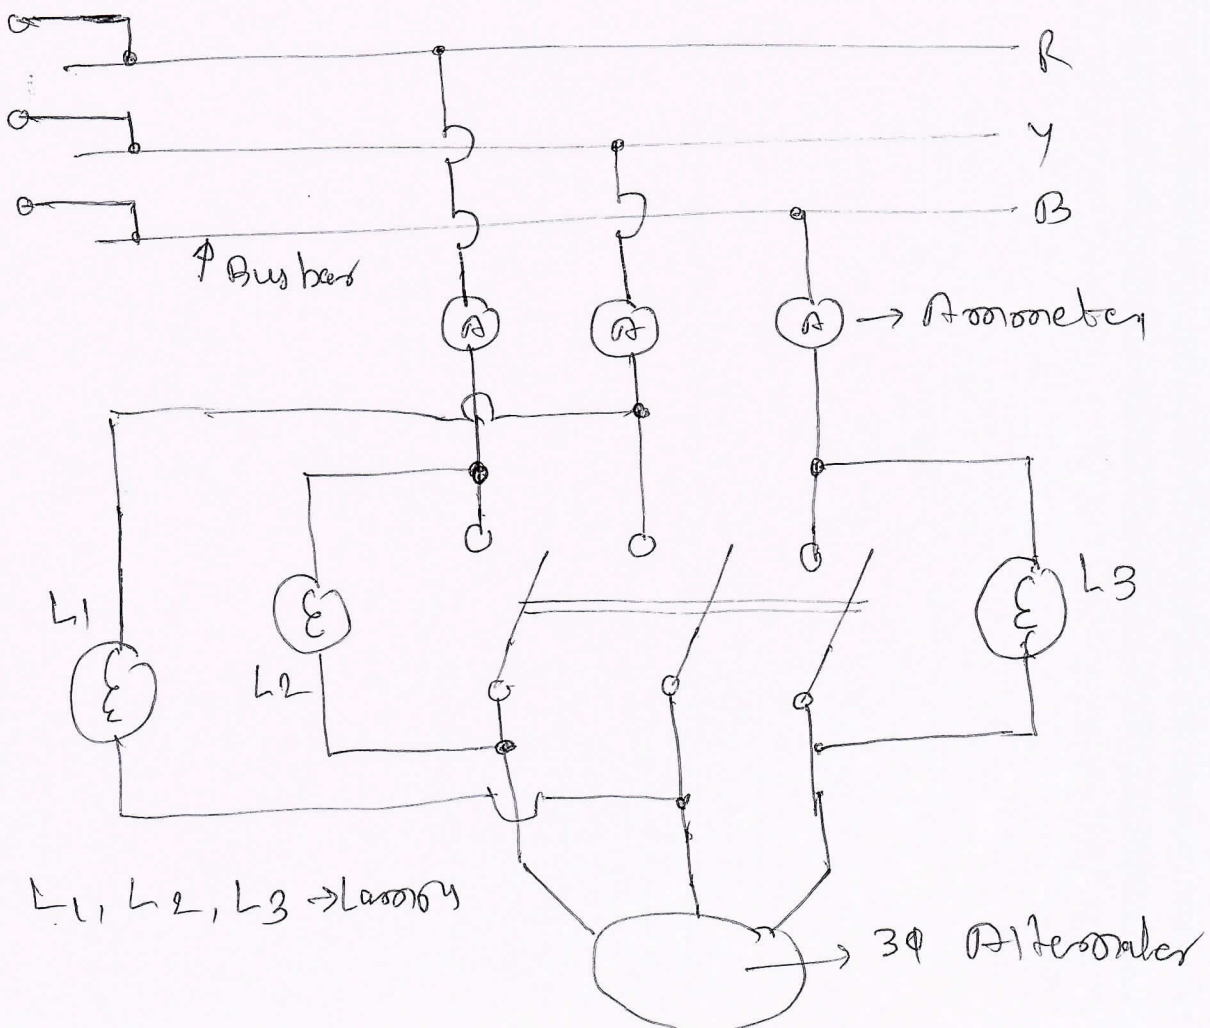 R
Y
B
Busbar
A
A
A
Ammeter
L1
L2
L3
L1, L2, L3 → Lamps
3φ Alternator